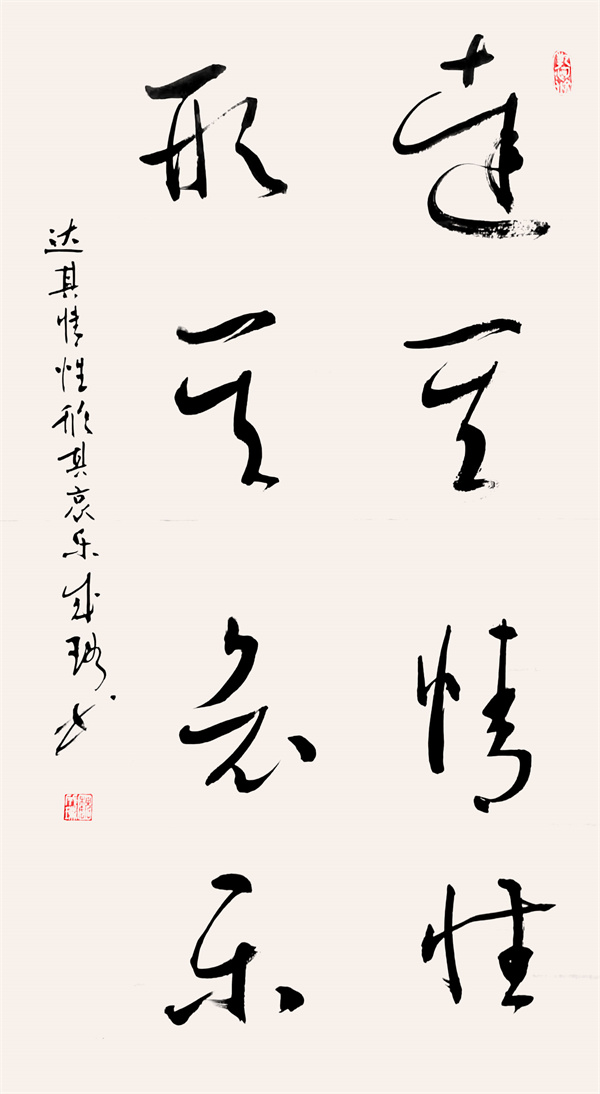 達其情性
形其哀乐
达其情性形其哀乐 成瑞书